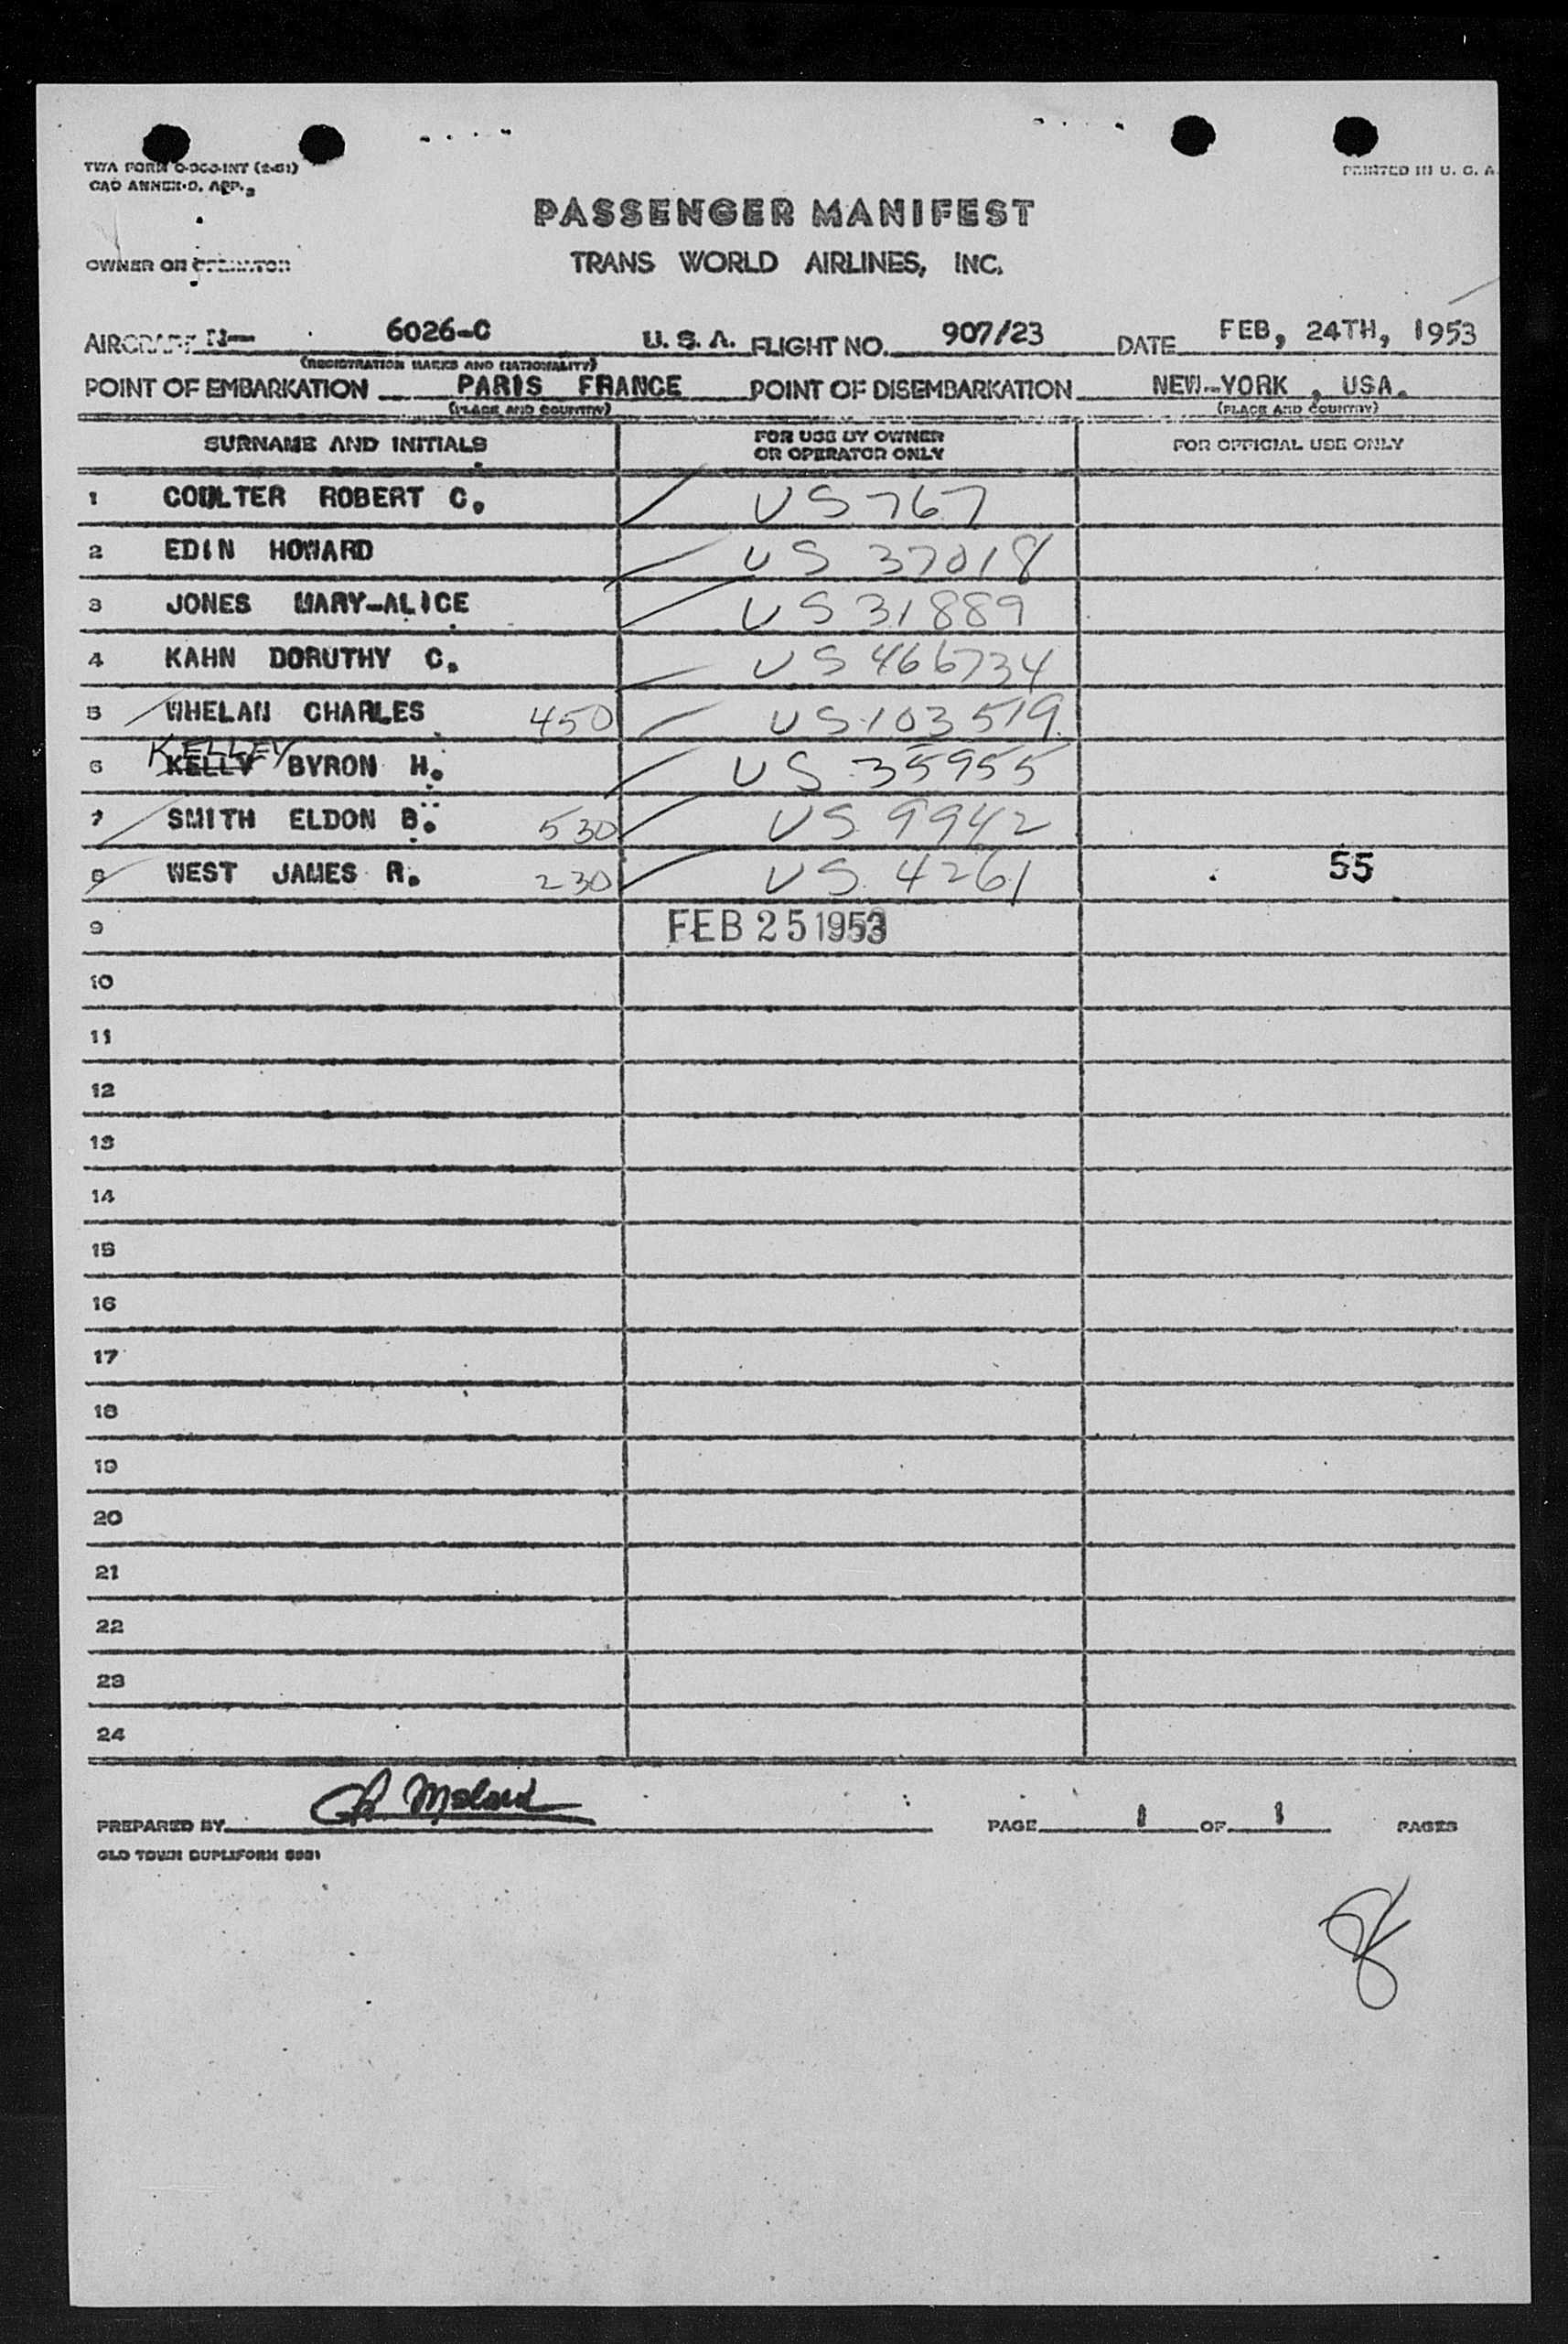 PRINTED IN U. S. A.
PASSENGER MANIFEST
OWNER OR OPERATOR
TRANS WORLD AIRLINES, INC.
AIRCRAFT N— 6026-C U. S. A. FLIGHT NO. 907/23 DATE FEB, 24TH, 1953
(REGISTRATION MARKS AND NATIONALITY)
POINT OF EMBARKATION PARIS FRANCE POINT OF DISEMBARKATION NEW-YORK , USA.
(PLACE AND COUNTRY) (PLACE AND COUNTRY)
SURNAME AND INITIALS FOR USE BY OWNER OR OPERATOR ONLY FOR OFFICIAL USE ONLY
1 COULTER ROBERT C. US 767
2 EDIN HOWARD US 37018
3 JONES MARY-ALICE US 31889
4 KAHN DORUTHY C. US 466734
5 WHELAN CHARLES 450 US 103519
KELLEY
6 KELLY BYRON H. US 35955
7 SMITH ELDON B. 530 US 9942
8 WEST JAMES R. 230 US 4261 55
9 FEB 25 1953
10
11
12
13
14
15
16
17
18
19
20
21
22
23
24
PREPARED BY PAGE 1 OF 1 PAGES
OLD TOWN DUPLIFORM
8